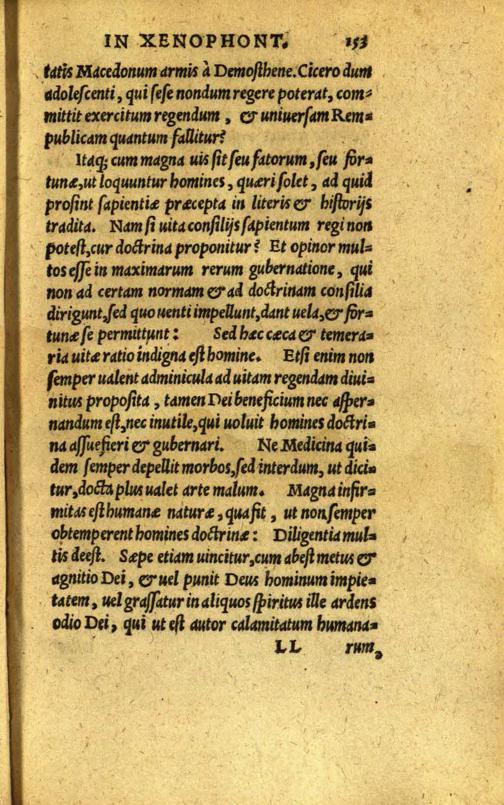 IN XENOPHONT. 153
tatis Macedonum armis à Demosthene. Cicero dum
adolescenti, qui sese nondum regere poterat, com-
mittit exercitum regendum, & uniuersam Rem-
publicam quantum fallitur?
Itaq; cum magna uis sit seu fatorum, seu for-
tunæ, ut loquuntur homines, quæri solet, ad quid
prosint sapientiæ præcepta in literis & historijs
tradita. Nam si uita consilijs sapientum regi non
potest, cur doctrina proponitur? Et opinor mul-
tos esse in maximarum rerum gubernatione, qui
non ad certam normam & ad doctrinam consilia
dirigunt, sed quo uenti impellunt, dant uela, & for-
tunæ se permittunt: Sed hæc cæca & temera-
ria uitæ ratio indigna est homine. Etsi enim non
semper ualent adminicula ad uitam regendam diui-
nitus proposita, tamen Dei beneficium nec asper-
nandum est, nec inutile, qui uoluit homines doctri-
na assuefieri & gubernari. Ne Medicina qui-
dem semper depellit morbos, sed interdum, ut dici-
tur, docta plus ualet arte malum. Magna infir-
mitas est humanæ naturæ, qua fit, ut non semper
obtemperent homines doctrinæ: Diligentia mul-
tis deest. Sæpe etiam uincitur, cum abest metus &
agnitio Dei, & uel punit Deus hominum impie-
tatem, uel grassatur in aliquos spiritus ille ardens
odio Dei, qui ut est autor calamitatum humana-
LL rum,